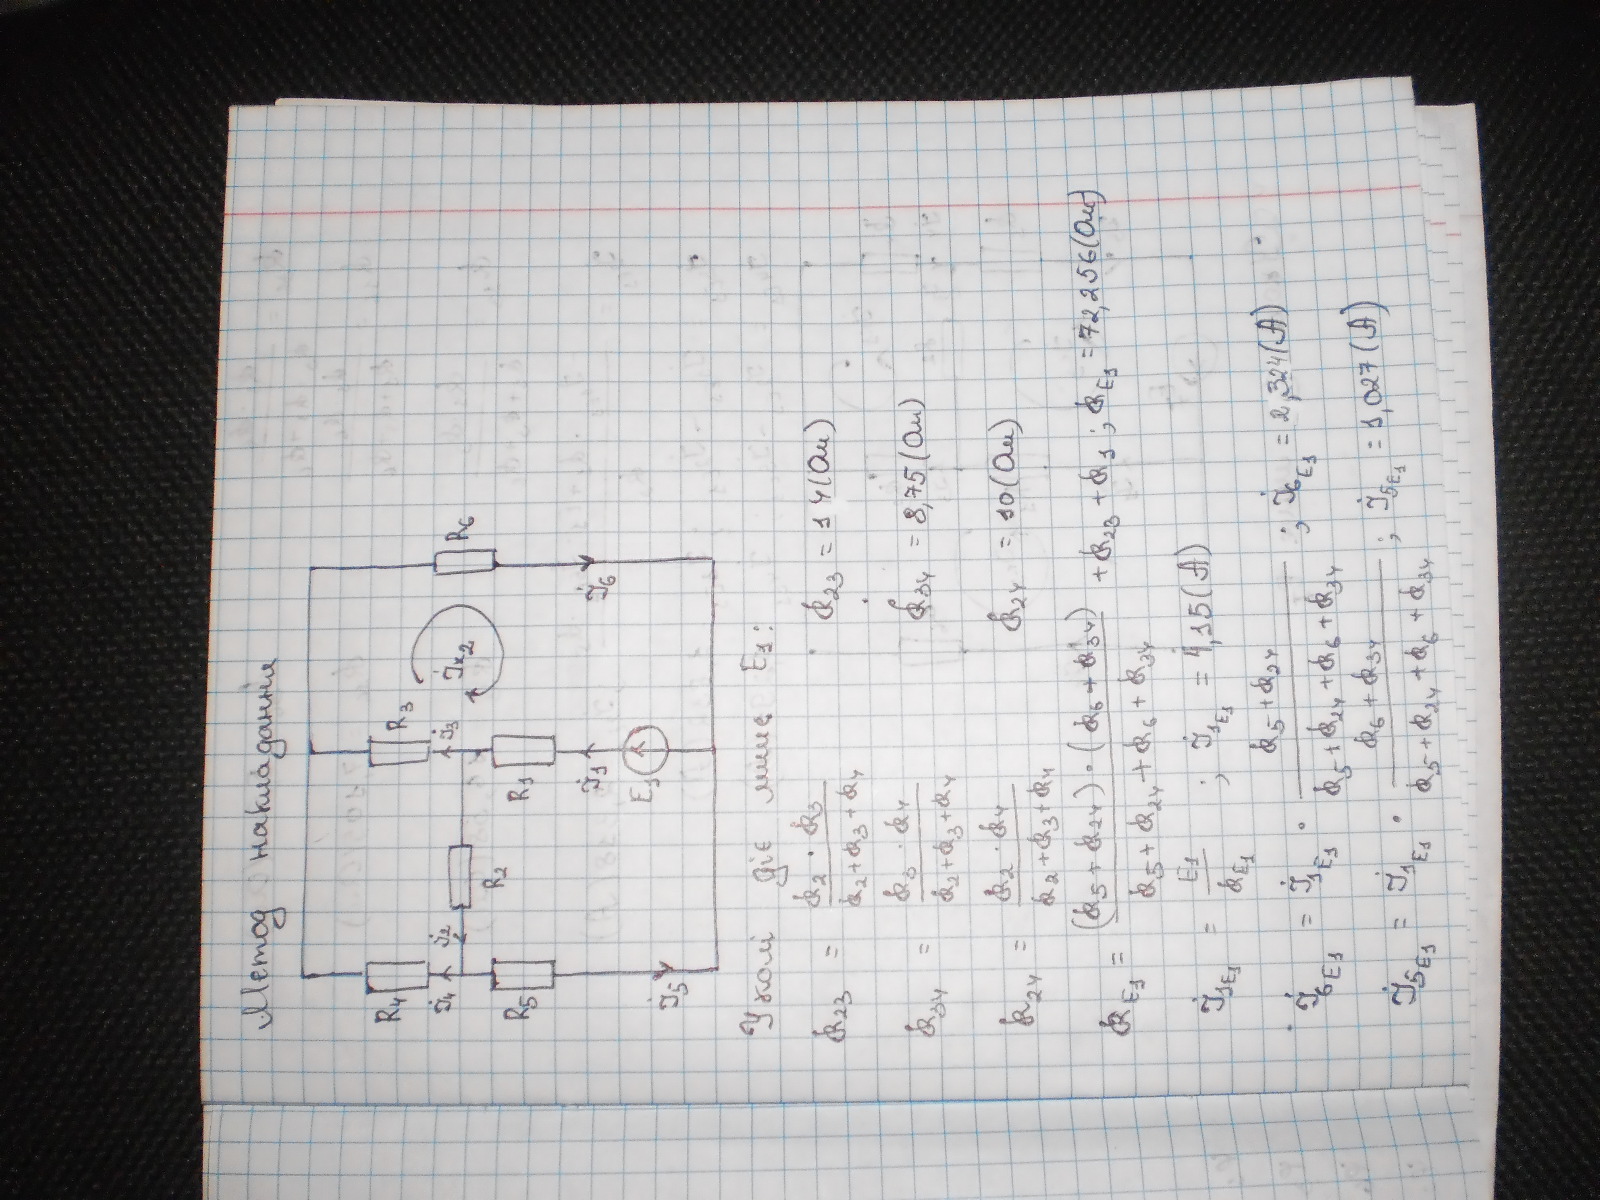 Метод накладання
R4 R3 R6
I4 I2 I3 Iк2
R2
R5 R1
I5 I1 I6
E1
У колі діє лише E1:
R23 = R2 · R3 / R2 + R3 + R4 R23 = 14 (Ом)
R34 = R3 · R4 / R2 + R3 + R4 R34 = 8,75 (Ом)
R24 = R2 · R4 / R2 + R3 + R4 R24 = 10 (Ом)
RE1 = (R5 + R24) · (R6 + R34) / R5 + R24 + R6 + R34 + R23 + R1; RE1 = 72,256 (Ом)
I1E1 = E1 / RE1 ; I1E1 = 4,15 (А)
I6E1 = I1E1 · R5 + R24 / R5 + R24 + R6 + R34 ; I6E1 = 2,324 (А)
I5E1 = I1E1 · R6 + R34 / R5 + R24 + R6 + R34 ; I5E1 = 1,027 (А)